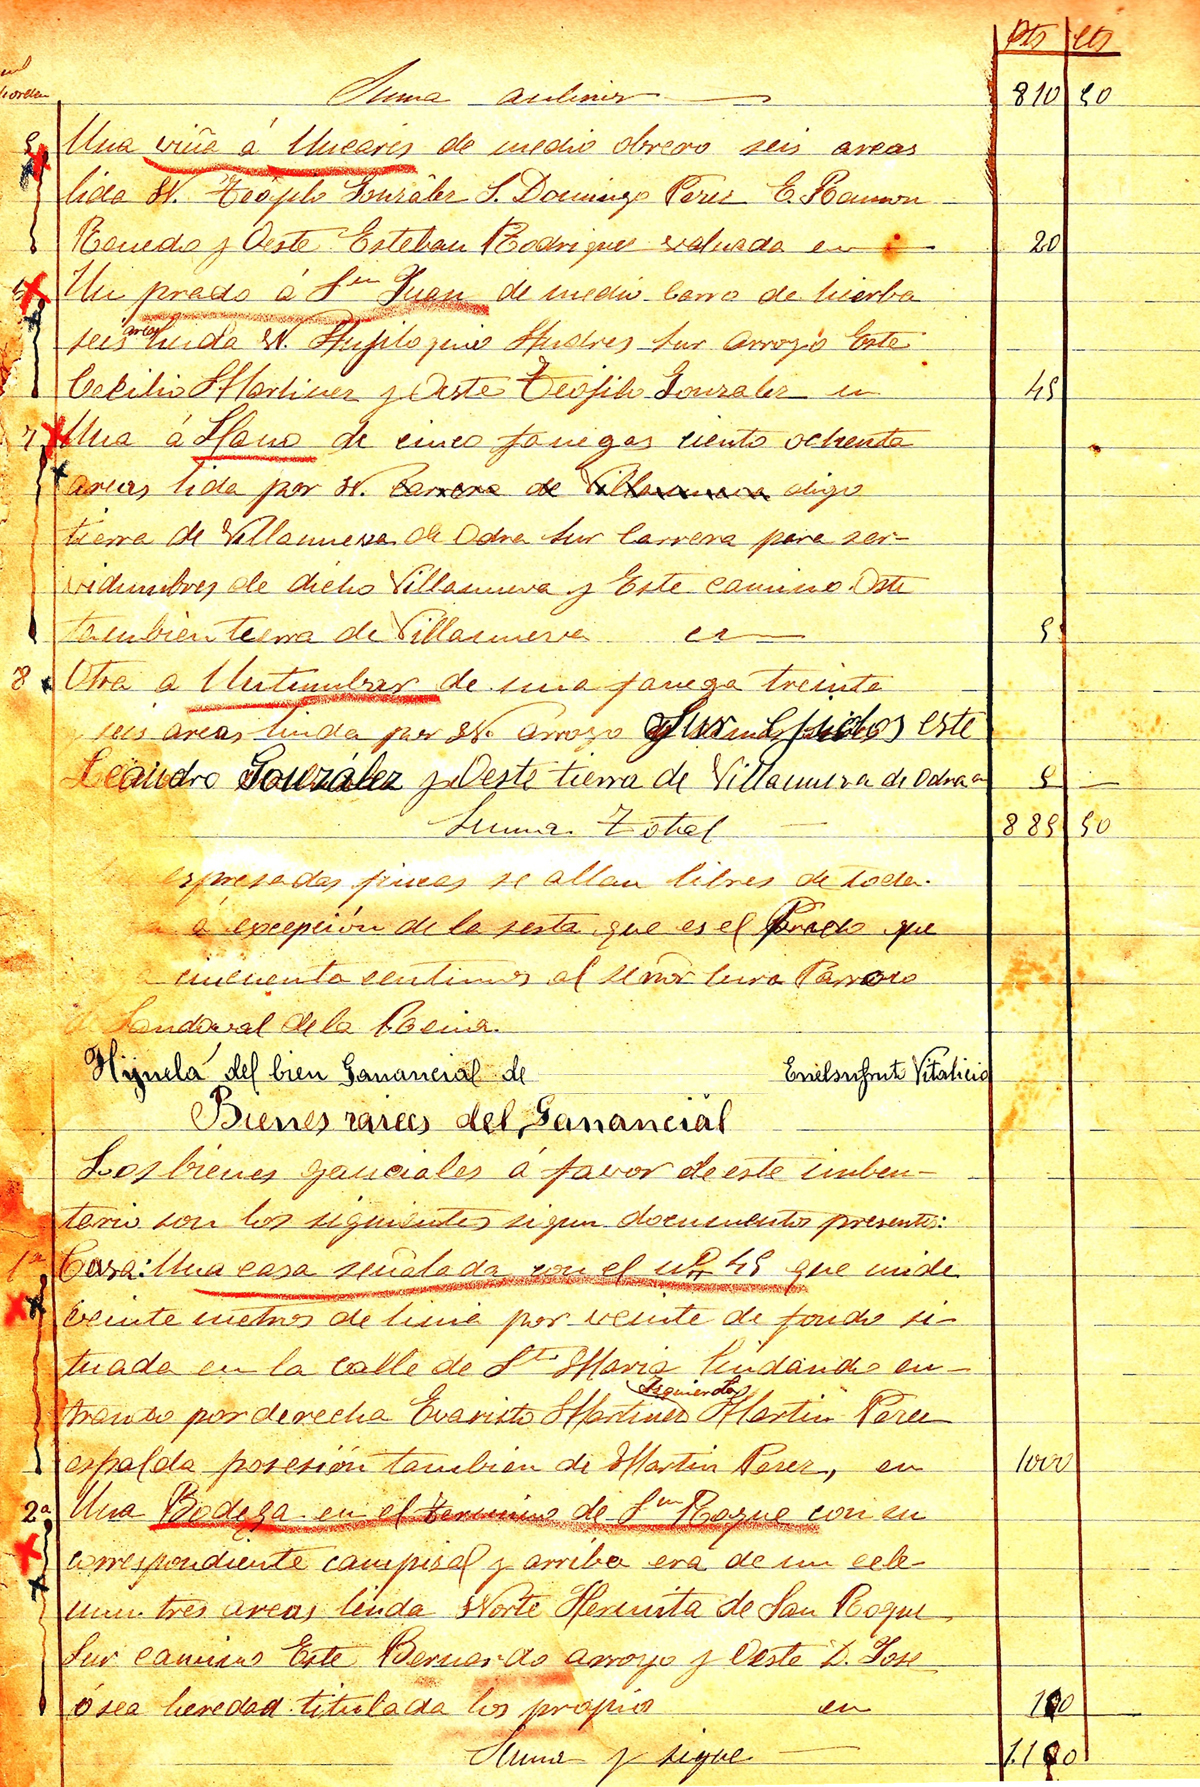 Pts cts
Suma anterior 810 50
5 Una viña á Unearis de medio obrero seis areas
lida N. Teófilo González S. Domingo Perez E. Ramon
Renedo y Oeste Esteban Rodriguez valuada en 20
Un prado á Sn Juan de medio carro de hierba
seis areas linda N. Andres Sur arroyo Este
Cecilio Martinez y Oeste Teófilo Gonzalez en 45
7 Una á Llano de cinco fanegas ciento ochenta
areas lida por N. carrera de Villanueva digo
tierra de Villanueva de Odra Sur Carrera para ser-
vidumbres de dicho Villanueva y Este camino Oste
tambien tierra de Villanueva en 5
8 Otra a de una fanega treinta
y seis areas linda por N. arroyo Sur este
Leandro González y Oeste tierra de Villanueva de Odra en 5
Suma Total 885 50
espresadas fincas se allan libres de toda
á excepción de la sesta que es el Prado que
cincuenta centimos al señor cura Parroco
Sandoval de la Reina.
Hijuela del bien Ganancial de Enelsufruto Vitalicio
Bienes raices del Ganancial
Los bienes ganciales á favor de este inben-
tario son los siguientes sigun documentos presentes:
1a Casa: Una casa señalada con el nº 45 que mide
veinte metros de linia por veinte de fondo si-
tuada en la calle de Sta Maria lindando en-
Izquierda
trando por derecha Evaristo Martinez Martin Perez
espalda posesión tambien de Martin Perez, en 1000
2a Una Bodega en el termino de Sn Roque con su
correspondiente campizal y arriba era de un cele-
min tres areas linda Norte Hermita de San Roque
Sur camino Este Bernardo arroyo y Oeste D. Jose
ósea heredad titulada los propios en 100
Suma y sigue 1.100